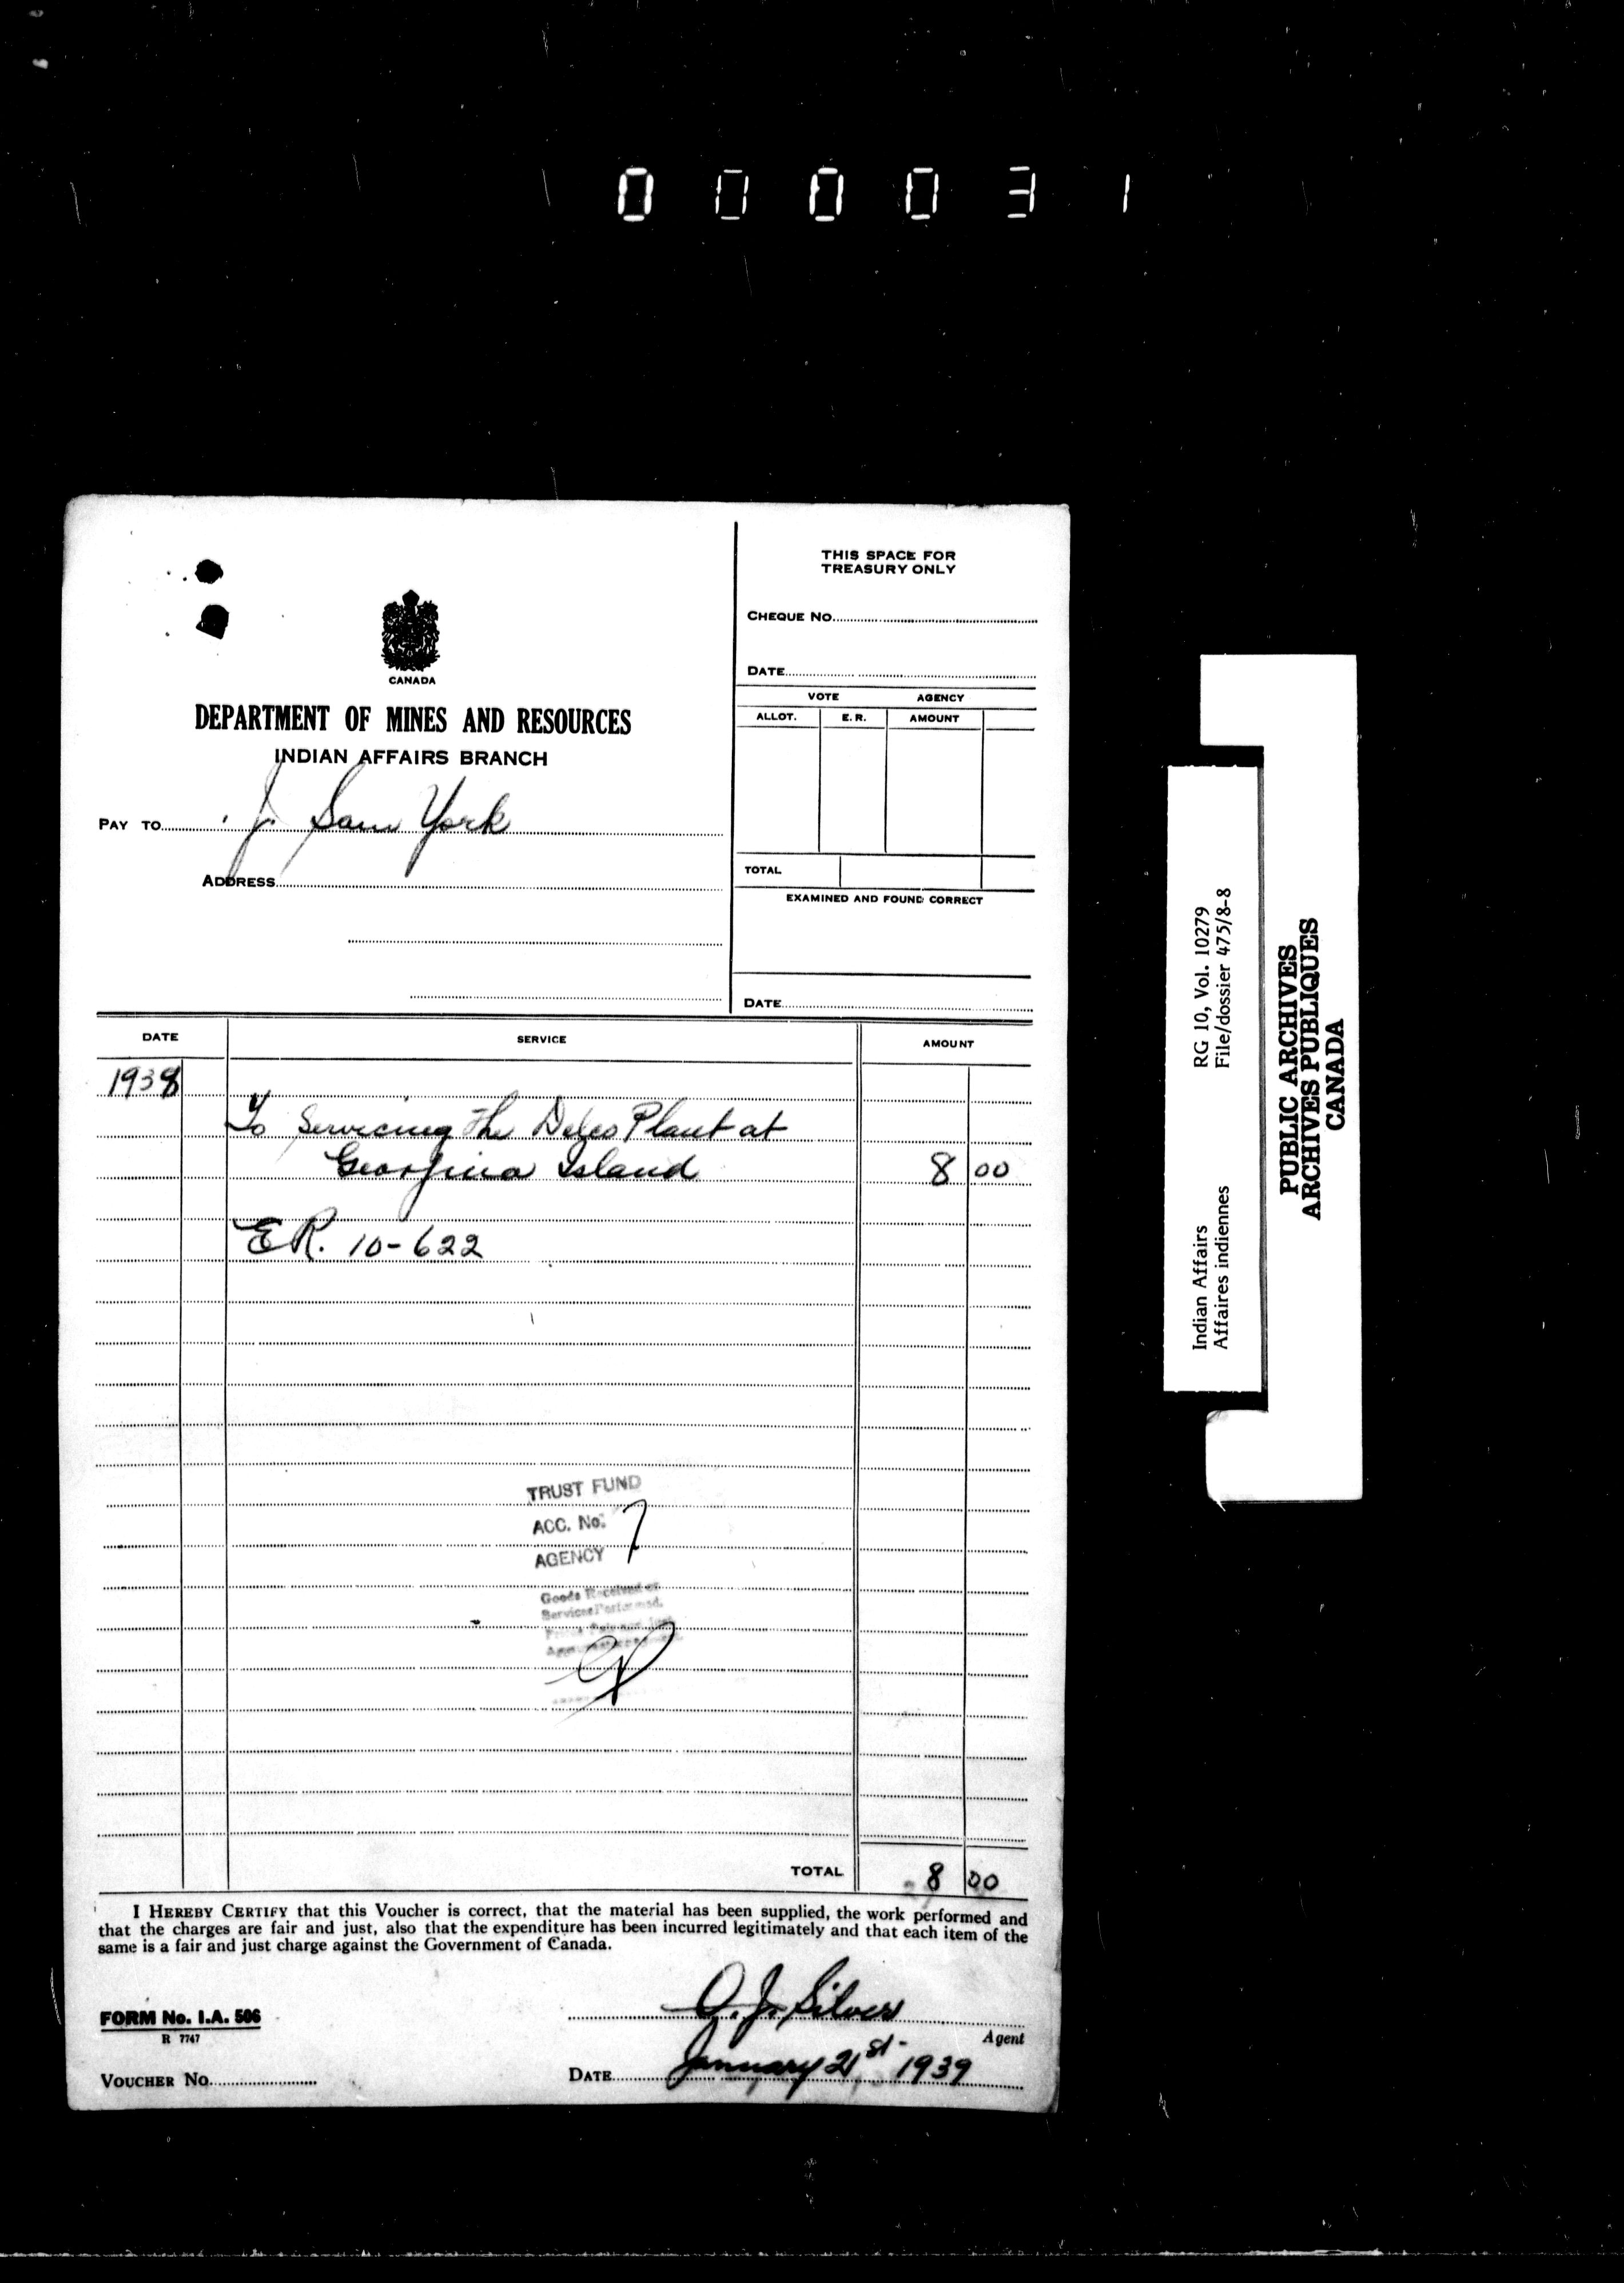 000031
THIS SPACE FOR
TREASURY ONLY
CHEQUE No.
DATE
VOTE AGENCY
ALLOT. E. R. AMOUNT
TOTAL
EXAMINED AND FOUND CORRECT
DATE
CANADA
DEPARTMENT OF MINES AND RESOURCES
INDIAN AFFAIRS BRANCH
PAY TO J. Sam York
ADDRESS
DATE SERVICE AMOUNT
1938
To Servicing the Delco Plant at
Georgina Island 8 00
E.R. 10-622
TRUST FUND
ACC. No. 7
AGENCY
Goods Received or
Services Performed.
TOTAL 8 00
I HEREBY CERTIFY that this Voucher is correct, that the material has been supplied, the work performed and
that the charges are fair and just, also that the expenditure has been incurred legitimately and that each item of the
same is a fair and just charge against the Government of Canada.
FORM No. I.A. 506
R 7747
J. Silver
Agent
VOUCHER No.
DATE January 21st 1939
Indian Affairs RG 10, Vol. 10279
Affaires indiennes File/dossier 475/8-8
PUBLIC ARCHIVES
ARCHIVES PUBLIQUES
CANADA